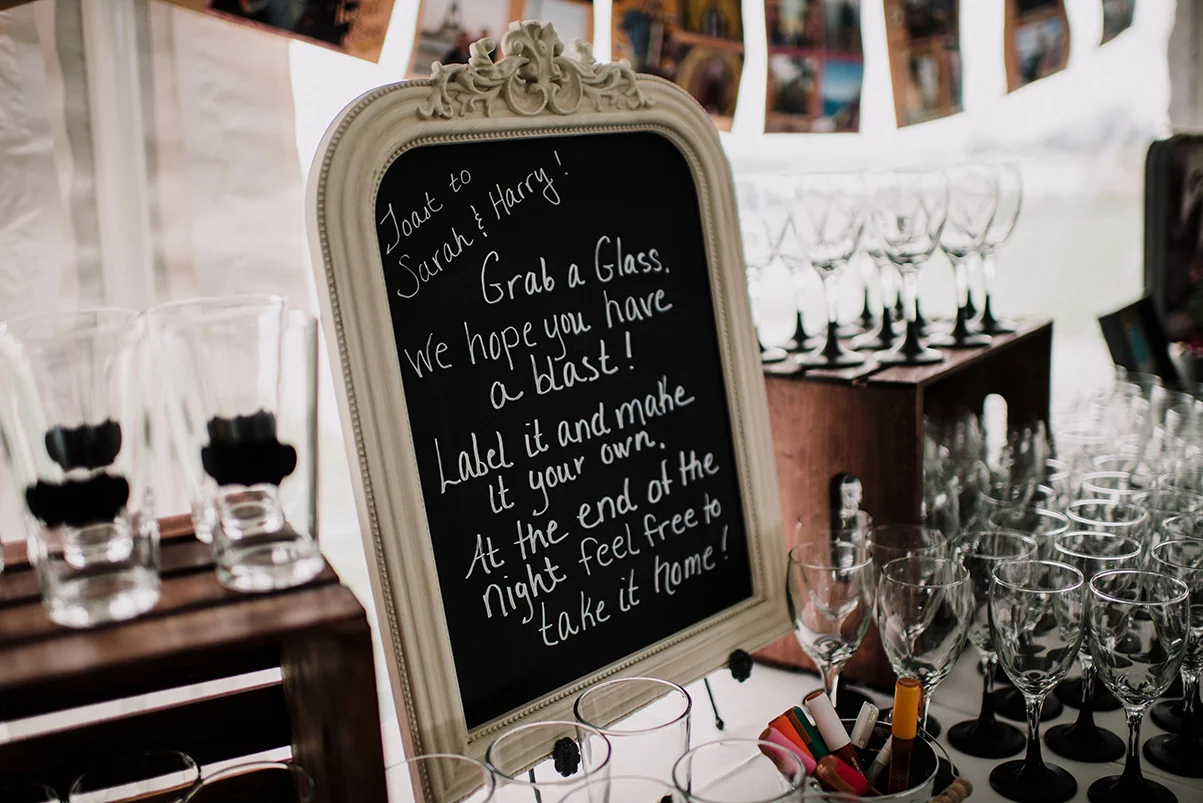 Toast to
Sarah & Harry!
Grab a Glass.
We hope you have
a blast!
Label it and make
it your own.
At the end of the
night feel free to
take it home!